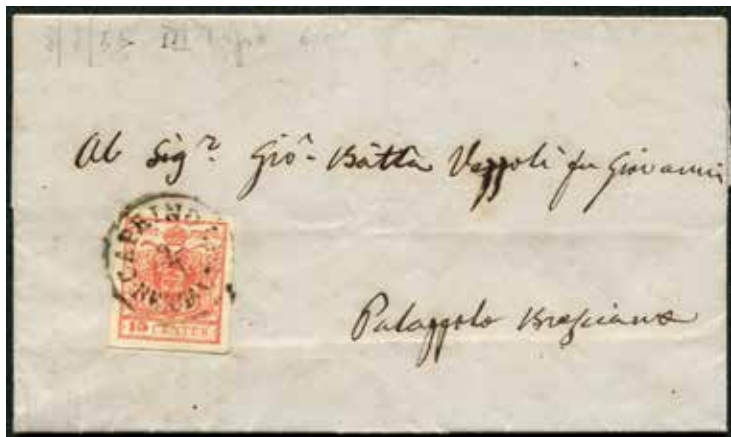 Al Sigr. Gio. Batta Vezzoli fu Giovanni
CAPRINO
15 CENTES
Palazzolo Bresciano